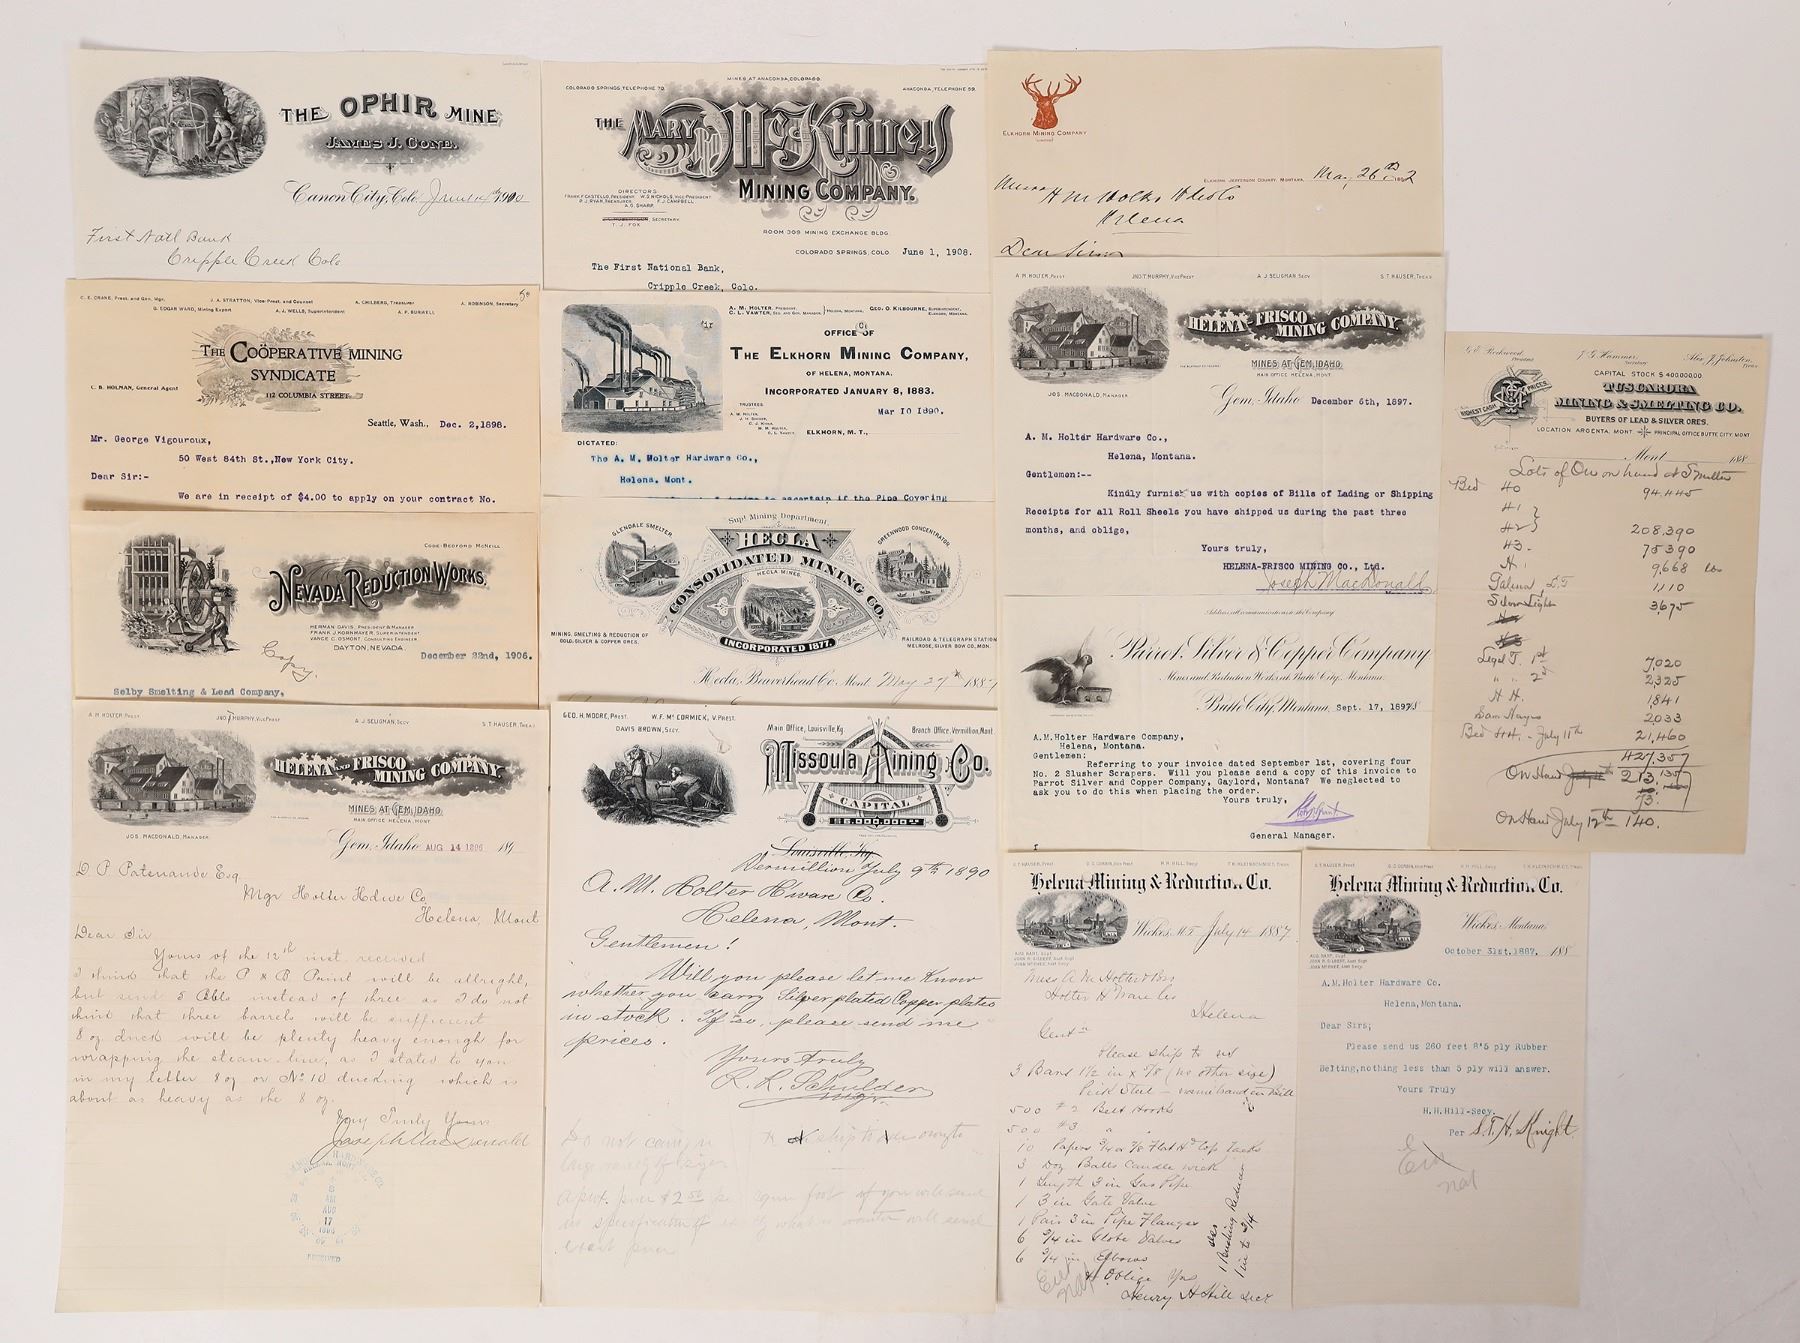 THE OPHIR MINE
JAMES J. CONE.
Canon City, Colo. June 14 1900
First Natl Bank
Cripple Creek Colo
MINES AT ANACONDA, COLORADO.
COLORADO SPRINGS TELEPHONE 70.
ANACONDA, TELEPHONE 59.
THE MARY McKINNEY
MINING COMPANY.
DIRECTORS
FRANK F. CASTELLO, PRESIDENT W. S. NICHOLS, VICE PRESIDENT
P. J. RYAN, TREASURER F. J. CAMPBELL
A. G. SHARP
SECRETARY.
T. J. FOX
ROOM 309 MINING EXCHANGE BLDG.
COLORADO SPRINGS, COLO. June 1, 1908.
The First National Bank,
Cripple Creek, Colo.
ELKHORN MINING COMPANY
LIMITED
ELKHORN, JEFFERSON COUNTY, MONTANA,
H M Holter Hdw Co
Helena
Dear Sirs
C. E. CRANE, Prest. and Gen. Mgr.
J. A. STRATTON, Vice Prest. and Counsel
A. CHILBERG, Treasurer
A. ROBINSON, Secretary
G. EDGAR WARD, Mining Expert
A. J. WELLS, Superintendent
A. P. BURWELL
THE COÖPERATIVE MINING
SYNDICATE
112 COLUMBIA STREET
C. B. HOLMAN, General Agent
Seattle, Wash., Dec. 2, 1898.
Mr. George Vigouroux,
50 West 84th St., New York City.
Dear Sir:-
We are in receipt of $4.00 to apply on your contract No.
A. M. HOLTER, PRESIDENT,
C. L. VAWTER, SEC. AND GEN. MANAGER
HELENA, MONTANA.
GEO. O. KILBOURNE, SUPERINTENDENT,
ELKHORN, MONTANA.
OFFICE OF
THE ELKHORN MINING COMPANY,
OF HELENA, MONTANA.
INCORPORATED JANUARY 8, 1883.
TRUSTEES:
Mar 10 1890.
ELKHORN, M. T.,
DICTATED:
The A. M. Holter Hardware Co.,
Helena. Mont.
to ascertain if the Pipe Covering
A. M. HOLTER, PREST
JNO. T. MURPHY, VICE PREST
A. J. SELIGMAN, SECY
S. T. HAUSER, TREAS
HELENA AND FRISCO
MINING COMPANY.
MINES AT GEM, IDAHO.
MAIN OFFICE HELENA, MONT.
JOS. MACDONALD, MANAGER
Gem, Idaho December 6th, 1897.
A. M. Holter Hardware Co.,
Helena, Montana.
Gentlemen:--
Kindly furnish us with copies of Bills of Lading or Shipping
Receipts for all Roll Sheels you have shipped us during the past three
months, and oblige,
Yours truly,
HELENA-FRISCO MINING CO., Ltd.
Joseph MacDonald
G. E. Rockwood, President
J. G. Hammer, Secretary
Alex J. Johnston, Treas
CAPITAL STOCK $400,000.00.
HIGHEST CASH PRICES.
TUSCARORA
MINING & SMELTING CO.
BUYERS OF LEAD & SILVER ORES.
LOCATION ARGENTA, MONT. PRINCIPAL OFFICE BUTTE CITY, MONT
Mont 188
Lots of Ore on hand at Smelter
Bed 40 94,445
41
42 } 208,390
43 75390
9,668 lbs
1,110
3,675
7,020
" " 2nd 2,325
H H. 1841
Sam Hayes 2033
Bed H H. - July 11th 21,460
427,357
On Hand July 213,
73.
On Hand July 12th 140.
CODE-BEDFORD MCNEILL
NEVADA REDUCTION WORKS.
HERMAN DAVIS, PRESIDENT & MANAGER
FRANK J. KORNMAYER, SUPERINTENDENT
VANCE C. OSMONT, CONSULTING ENGINEER
DAYTON, NEVADA.
Copy.
December 22nd, 1906.
Selby Smelting & Lead Company,
Supt Mining Department.
GLENDALE SMELTER
HECLA
GREENWOOD CONCENTRATOR
CONSOLIDATED MINING CO.
HECLA MINES.
INCORPORATED 1877.
MINING, SMELTING & REDUCTION OF
GOLD, SILVER & COPPER ORES.
RAILROAD & TELEGRAPH STATION
MELROSE, SILVER BOW CO, MON.
Hecla, Beaverhead Co. Mont. May 27th 1887
Address all communications to the Company
Parrot Silver & Copper Company.
Mines and Reduction Works at Butte City, Montana.
Butte City, Montana, Sept. 17, 1898
A.M.Holter Hardware Company,
Helena, Montana.
Gentlemen:
Referring to your invoice dated September 1st, covering four
No. 2 Slusher Scrapers. Will you please send a copy of this invoice to
Parrot Silver and Copper Company, Gaylord, Montana? We neglected to
ask you to do this when placing the order.
Yours truly,
General Manager.
A. M. HOLTER, PREST
JNO. T. MURPHY, VICE PREST
A. J. SELIGMAN, SECY
S. T. HAUSER, TREAS
HELENA AND FRISCO
MINING COMPANY.
MINES AT GEM, IDAHO.
MAIN OFFICE HELENA, MONT.
JOS. MACDONALD, MANAGER.
Gem, Idaho AUG 14 1896 189
D P Patenaude Esq
Mgr Holter Hdwe Co
Helena, Mont
Dear Sir
Yours of the 12th inst. received
I think that the P & B Paint will be allright,
but send 5 Bbls instead of three as I do not
think that three barrels will be sufficient
8 oz duck will be plenty heavy enough for
wrapping the steam-line, as I stated to you
in my letter 8 oz or No 10 ducking which is
about as heavy as the 8 oz.
Very Truly Yours
Joseph MacDonald
HELENA, MONT
8 AM
AUG
17
1896
RECEIVED
GEO. H. MOORE, PREST.
W. F. McCORMICK, V. PREST.
DAVIS BROWN, SECY.
Main Office, Louisville, Ky.
Branch Office, Vermillion, Mont.
Missoula Mining Co.
CAPITAL
$5,000,000
Louisville, Ky.
Vermillion July 9th 1890
A. M. Holter H'ware Co.
Helena, Mont.
Gentlemen!
Will you please let me know
whether you carry Silver plated Copper plates
in stock. If so, please send me
prices.
Yours Truly
R. R. Schulder
Mgr.
Do not carry in
large variety of sizes
S. T. HAUSER, Prest
D. C. CORBIN, Vice Prest
H. H. HILL, Secy
T. H. KLEINSCHMIDT, Treas
Helena Mining & Reduction Co.
Wickes, M.T. July 14 1887
Mess A. M. Holter & Bro
Holter H'Ware Co
Helena
Gent'n
Please ship to us
3 Bars 1 1/2 in x 5/8 (no other size)
500 #2 Belt Hooks
500 #3 " "
10 Papers 3/4 or 7/8 Flat Hd Cop Tacks
3 Doz Balls Candle wick
1 Length 3 in Gas Pipe
1 3 in Gate Valve
1 Pair 3 in Pipe Flanges
6 3/4 in Globe Valves
6 3/4 in Elbows
1 Bushing Reducer
1 in to 3/4
& Oblige Yrs
Henry H Hill Secy
S. T. HAUSER, Prest
D. C. CORBIN, Vice Prest
H. H. HILL, Secy
T. H. KLEINSCHMIDT, Treas
Helena Mining & Reduction Co.
Wickes, Montana,
October 31st, 1887, 188
A.M.Holter Hardware Co.
Helena, Montana.
Dear Sirs;
Please send us 260 feet 8"5 ply Rubber
Belting, nothing less than 5 ply will answer.
Yours Truly
H.H.Hill-Secy.
Per S.T.H. Knight.